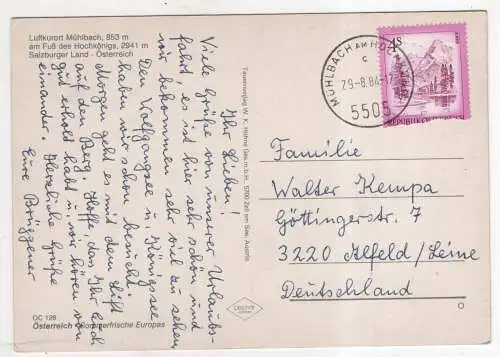 Luftkurort Mühlbach, 853 m
am Fuß des Hochkönigs, 2941 m
Salzburger Land - Österreich
Ihr Lieben!
Viele Grüße von unserer Urlaubs-
fahrt! es ist hier sehr schön und
wir bekommen sehr viel zu sehen.
Den Wolfgangsee u. Königssee
haben wir schon besucht.
Morgen geht es mit dem Lift
auf den Berg. Hoffe, dass Ihr Euch
gut erholt habt u. wir hören von
einander. Herzliche Grüße
Eure Brüggener
OC 126
Österreich Sommerfrische Europas
Tauernverlag W. K. Hühne Ges.m.b.H., 5700 Zell am See, Austria
MÜHLBACH AM
c
29.-8.84-12
5505
4S
REPUBLIK
Familie
Walter Kempa
Göttingerstr. 7
3220 Alfeld/Leine
Deutschland